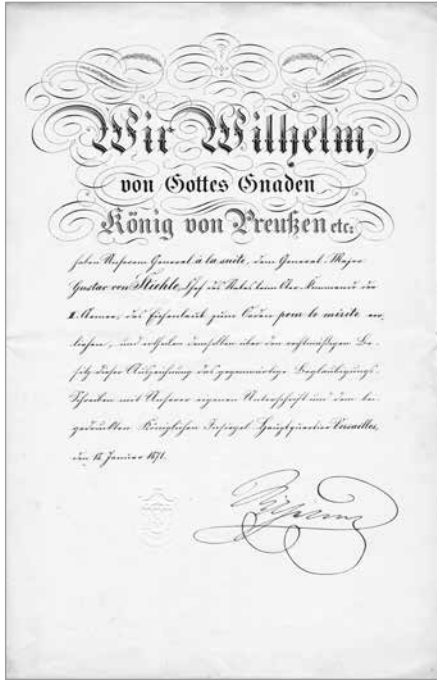 Wir Wilhelm,
von Gottes Gnaden
König von Preußen etc:
haben Unserem General à la suite, dem General-Major
Gustav von Stiehle, Chef des Stabes beim Ober-Kommando der
II. Armee, das Eichenlaub zum Orden pour le mérite ver-
liehen, und ertheilen demselben über den rechtmäßigen Be-
sitz dieser Auszeichnung das gegenwärtige Beglaubigungs-
Schreiben mit Unserer eigenen Unterschrift und dem bei-
gedruckten Königlichen Insiegel. Hauptquartier Versailles,
den Januar 1871.
Wilhelm